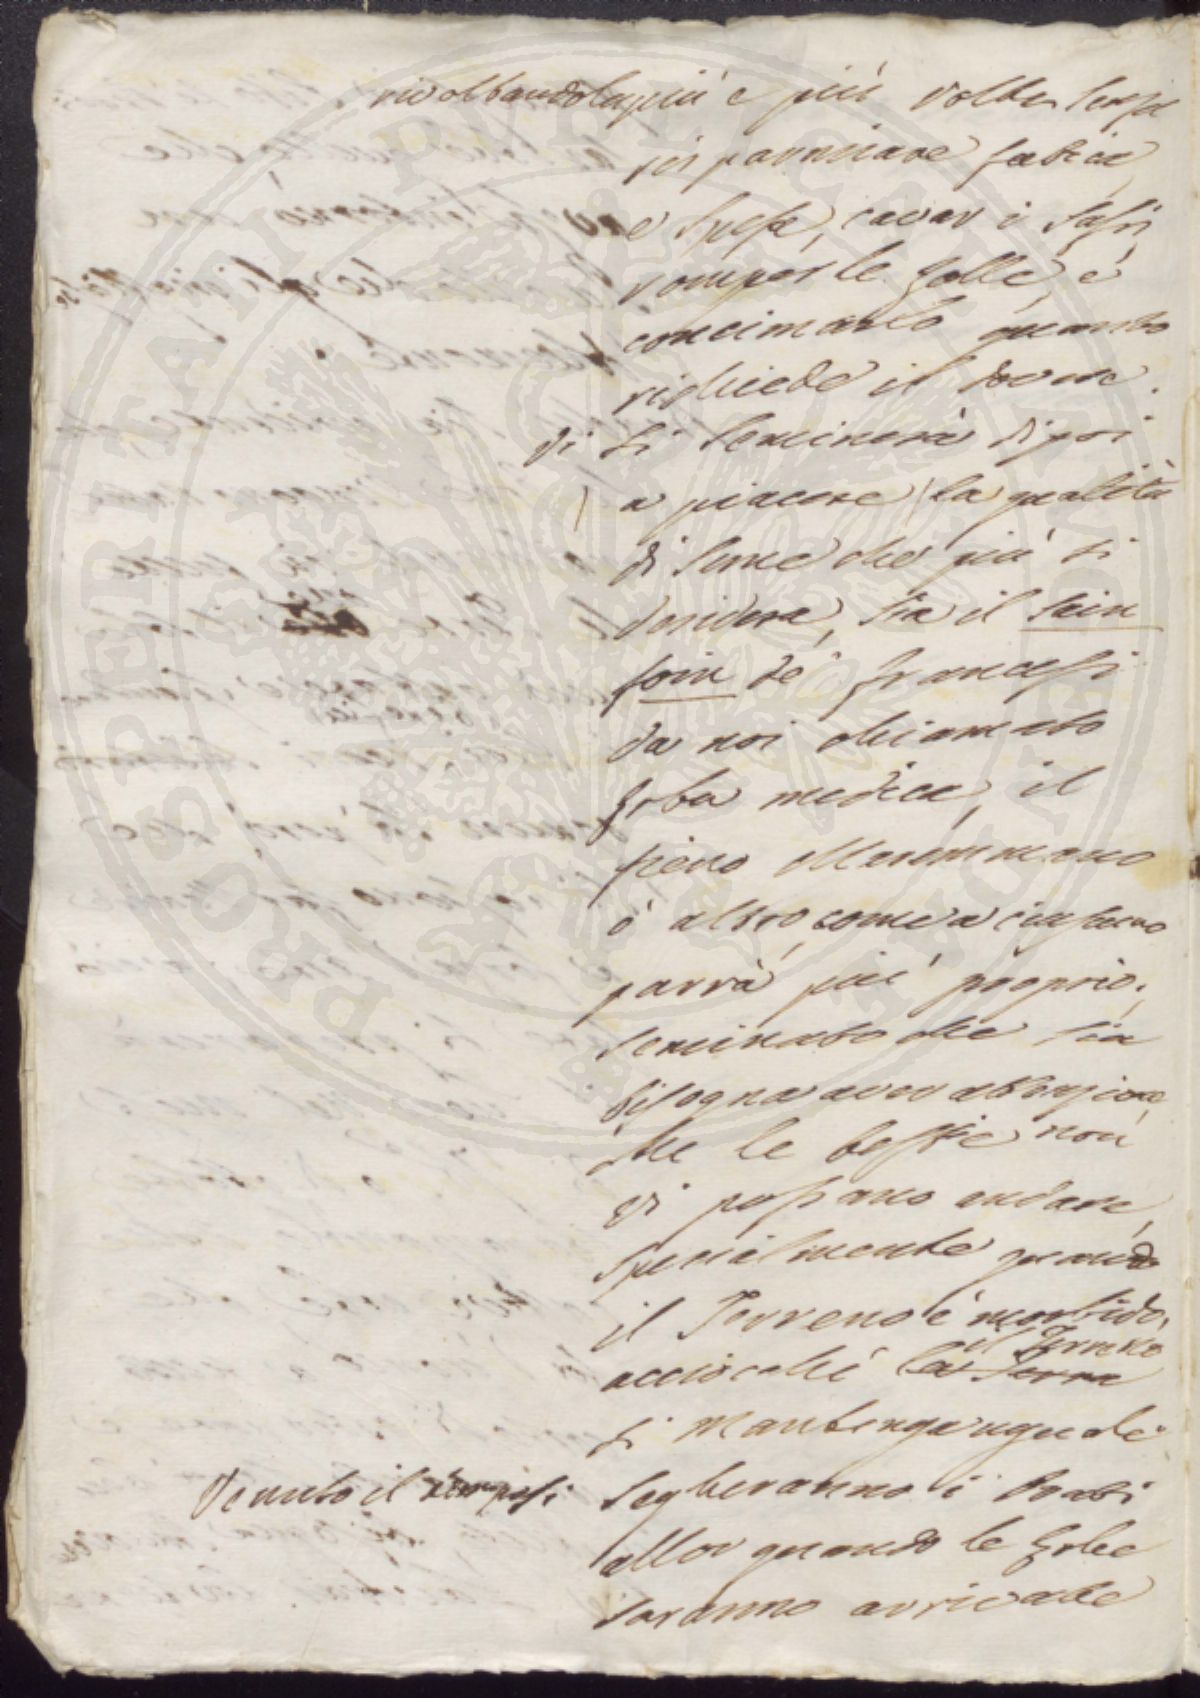 rivoltandola più e più volte senza
risparmiare fatica
e spesa, cavar i sassi
romper le zolle, e
concimarlo quanto
richiede il dovere.
Vi si seminerà dipoi
a piacere la qualità
di seme che più si
desidera, sia il sain
foin de' francesi
da noi chiamato
Erba medica, il
fieno oltramontano
ò altro, come a ciascuno
parrà più proprio.
Seminato che sia
bisogna aver attenzione
che le bestie non
vi possano andare,
specialmente quando
il Terreno è morbido,
acciocché la Terra il Terreno
si mantenga uguale
Venuto il tempo si segheranno i Prati
allor quando le Erbe
saranno arrivate
PROSPERITATI PUBLICAE AUGENDAE